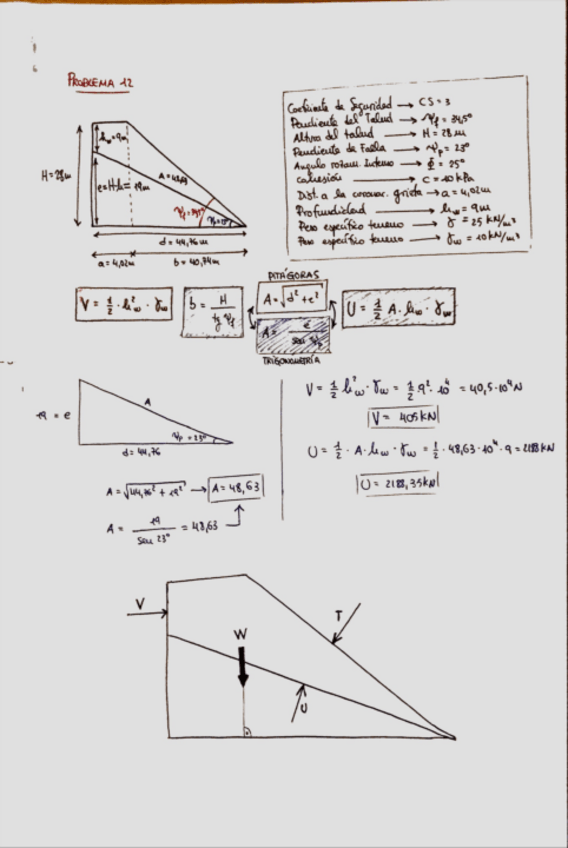 PROBLEMA 12
Coeficiente de Seguridad → CS = 3
Pendiente del Talud → Ψf = 34,5°
Altura del talud → H = 28 m
Pendiente de Falla → Ψp = 23°
Angulo rozam. Interno → Φ = 25°
Cohesión → C = 10 kPa
Dist. a la coronac. grieta → a = 4,02m
Profundidad → hw = 9m
Peso específico terreno → γ = 25 kN/m³
Peso específico terreno → γw = 10 kN/m³
H = 28m
hw = 9m
e = H-h = 19m
A = 48,63
Ψf = 34,5°
Ψp = 23°
d = 44,76m
a = 4,02m
b = 40,74m
V = 1/2 · hw² · γw
b = H / tg Ψf
PITÁGORAS
A = √d² + e²
A = e / sen Ψp
TRIGONOMETRÍA
U = 1/2 A · hw · γw
19 = e
A
Ψp = 23°
d = 44,76
A = √44,76² + 19² → A = 48,63
A = 19 / sen 23° = 48,63
V = 1/2 hw² · γw = 1/2 9² · 10⁴ = 40,5·10⁴N
V = 405KN
U = 1/2 · A · hw · γw = 1/2 · 48,63 · 10⁴ · 9 = 2188 KN
U = 2188,35KN
V
T
W
U